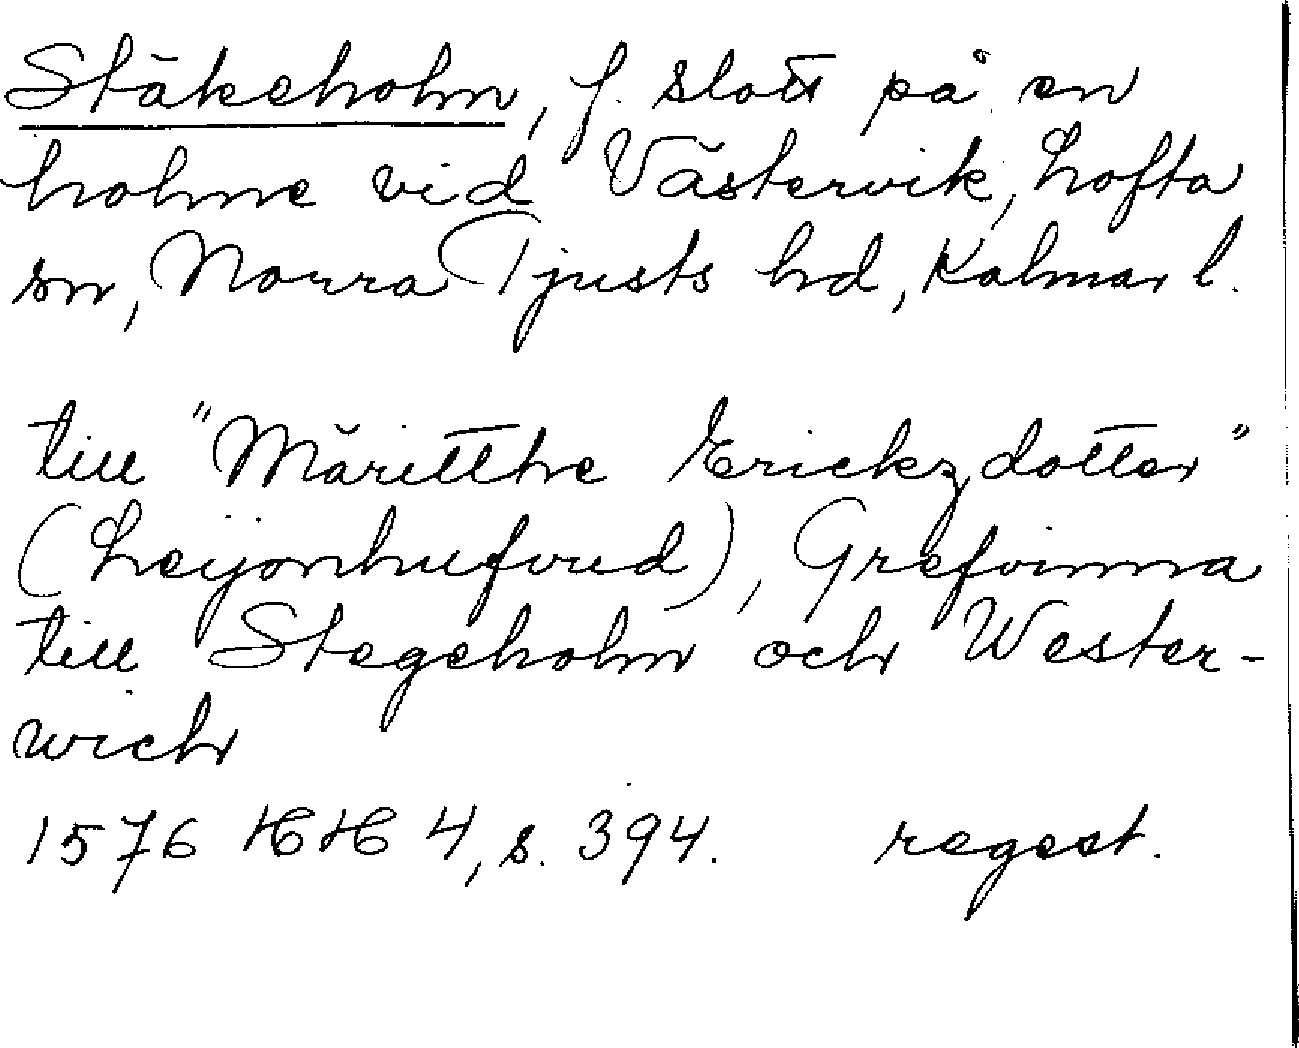 Stäkeholm, f. slott på en
holme vid Västervik, Lofta
sn, Norra Tjusts hd, Kalmar l.
till "Märitthe Erickzdotter"
(Leijonhufvud), Grefvinna
till Stegeholm och Wester-
wich
1576 HH 4, s. 394. regest.